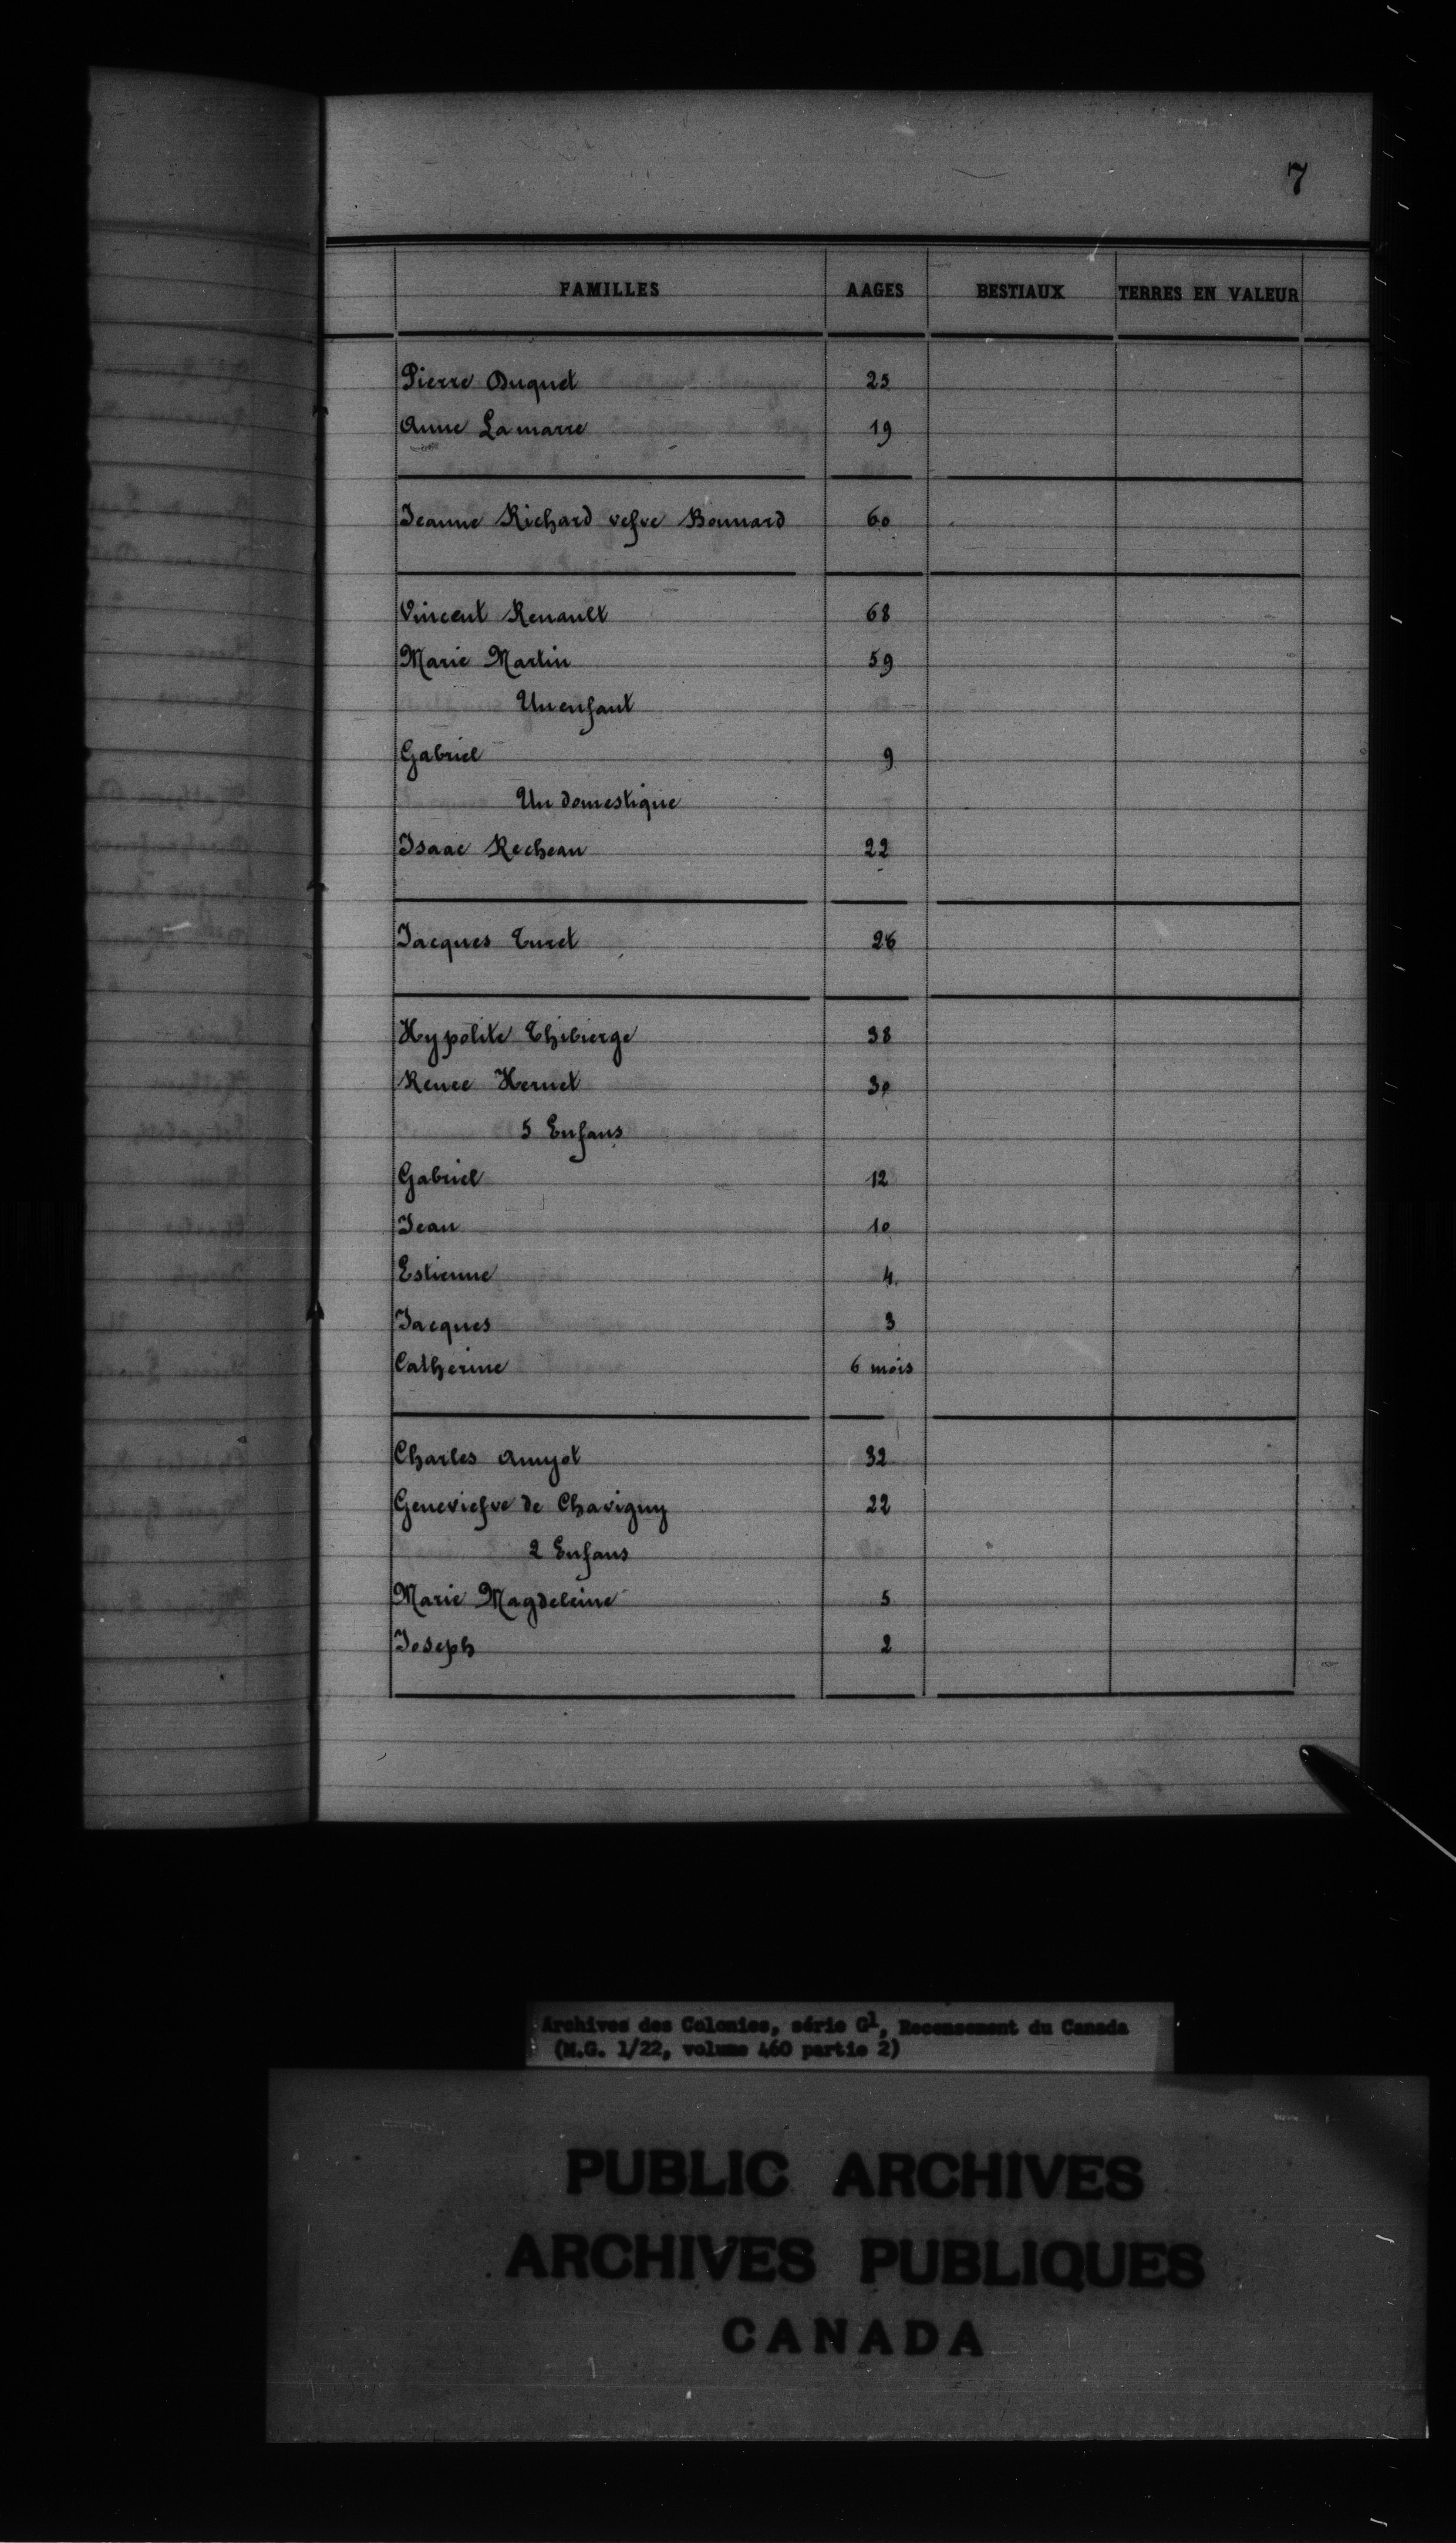 7
FAMILLES AAGES BESTIAUX TERRES EN VALEUR
Pierre Duquet 25
Anne Lamarre 19
Jeanne Richard vefve Bonnard 60
Vincent Renault 68
Marie Martin 59
Un enfant
Gabriel 9
Un domestique
Isaac Recheau 22
Jacques Turet 26
Hypolite Thibierge 38
Renee Hernet 30
5 Enfans
Gabriel 12
Jean 10
Estienne 4
Jacques 3
Catherine 6 mois
Charles Amyot 32
Geneviefve de Chavigny 22
2 Enfans
Marie Magdeleine 5
Joseph 2
Archives des Colonies, série G1, Recensement du Canada
(M.G. 1/22, volume 460 partie 2)
PUBLIC ARCHIVES
ARCHIVES PUBLIQUES
CANADA